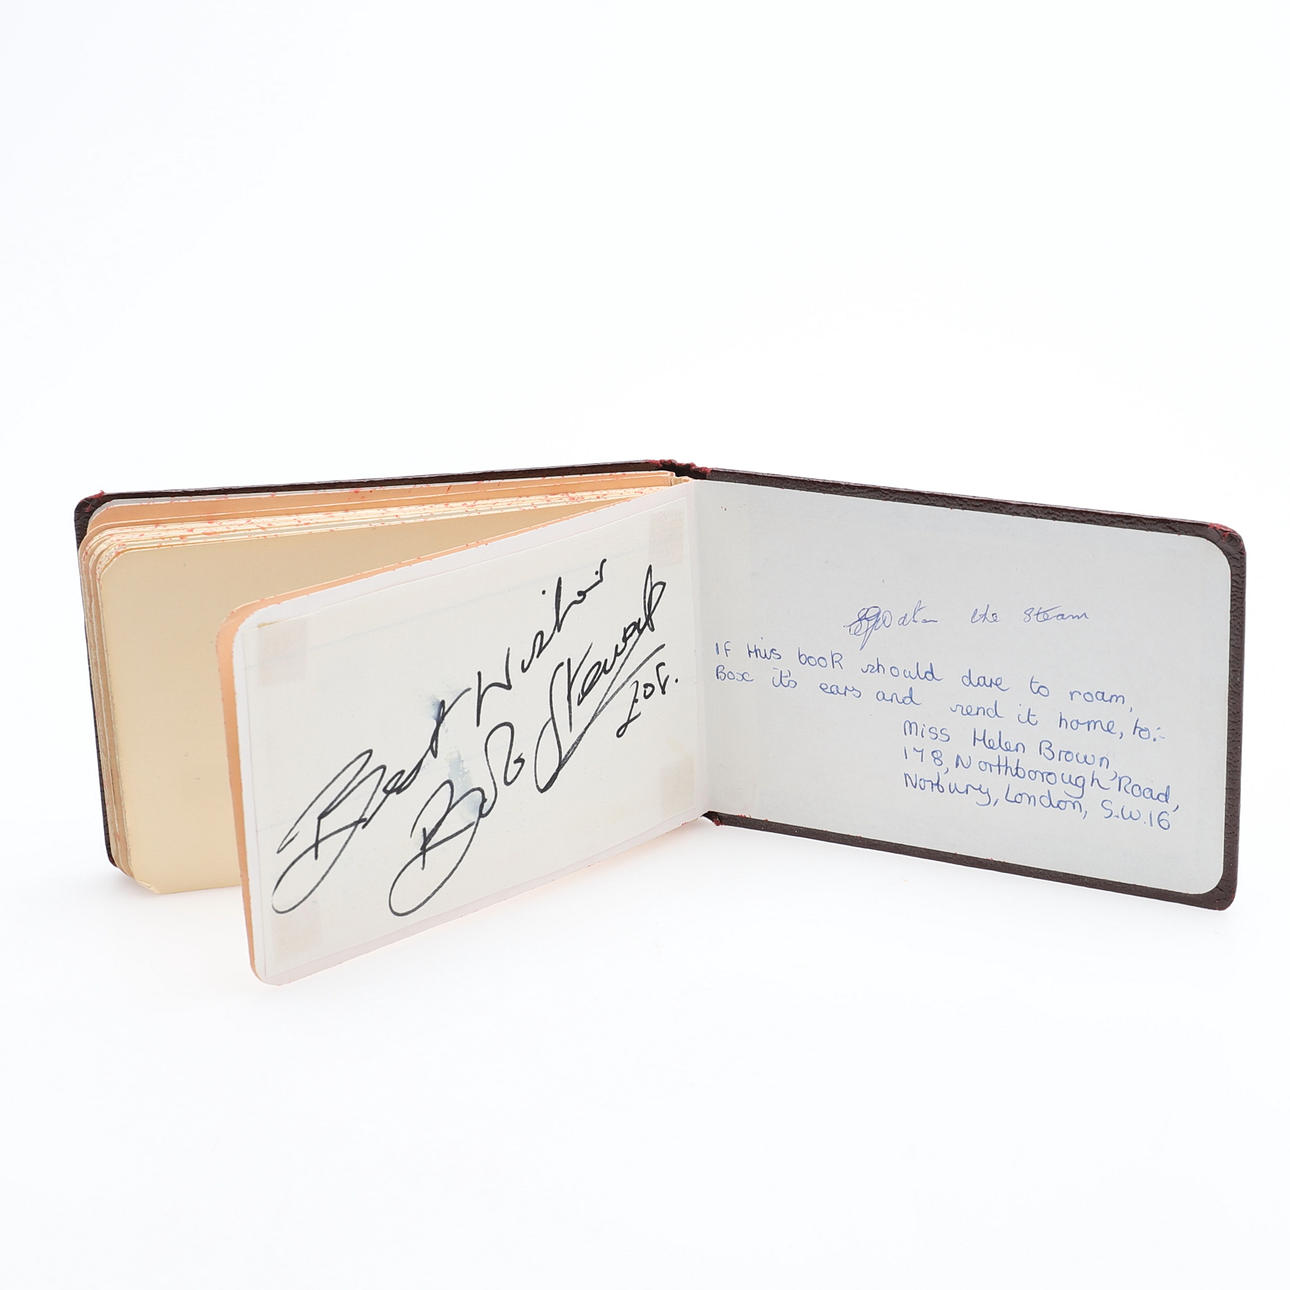 Best Wishes
Bob Stewart
208.
the Steam
If this book should dare to roam,
Box it's ears and send it home, to:-
Miss Helen Brown
178, Northborough Road,
Norbury, London, S.W.16